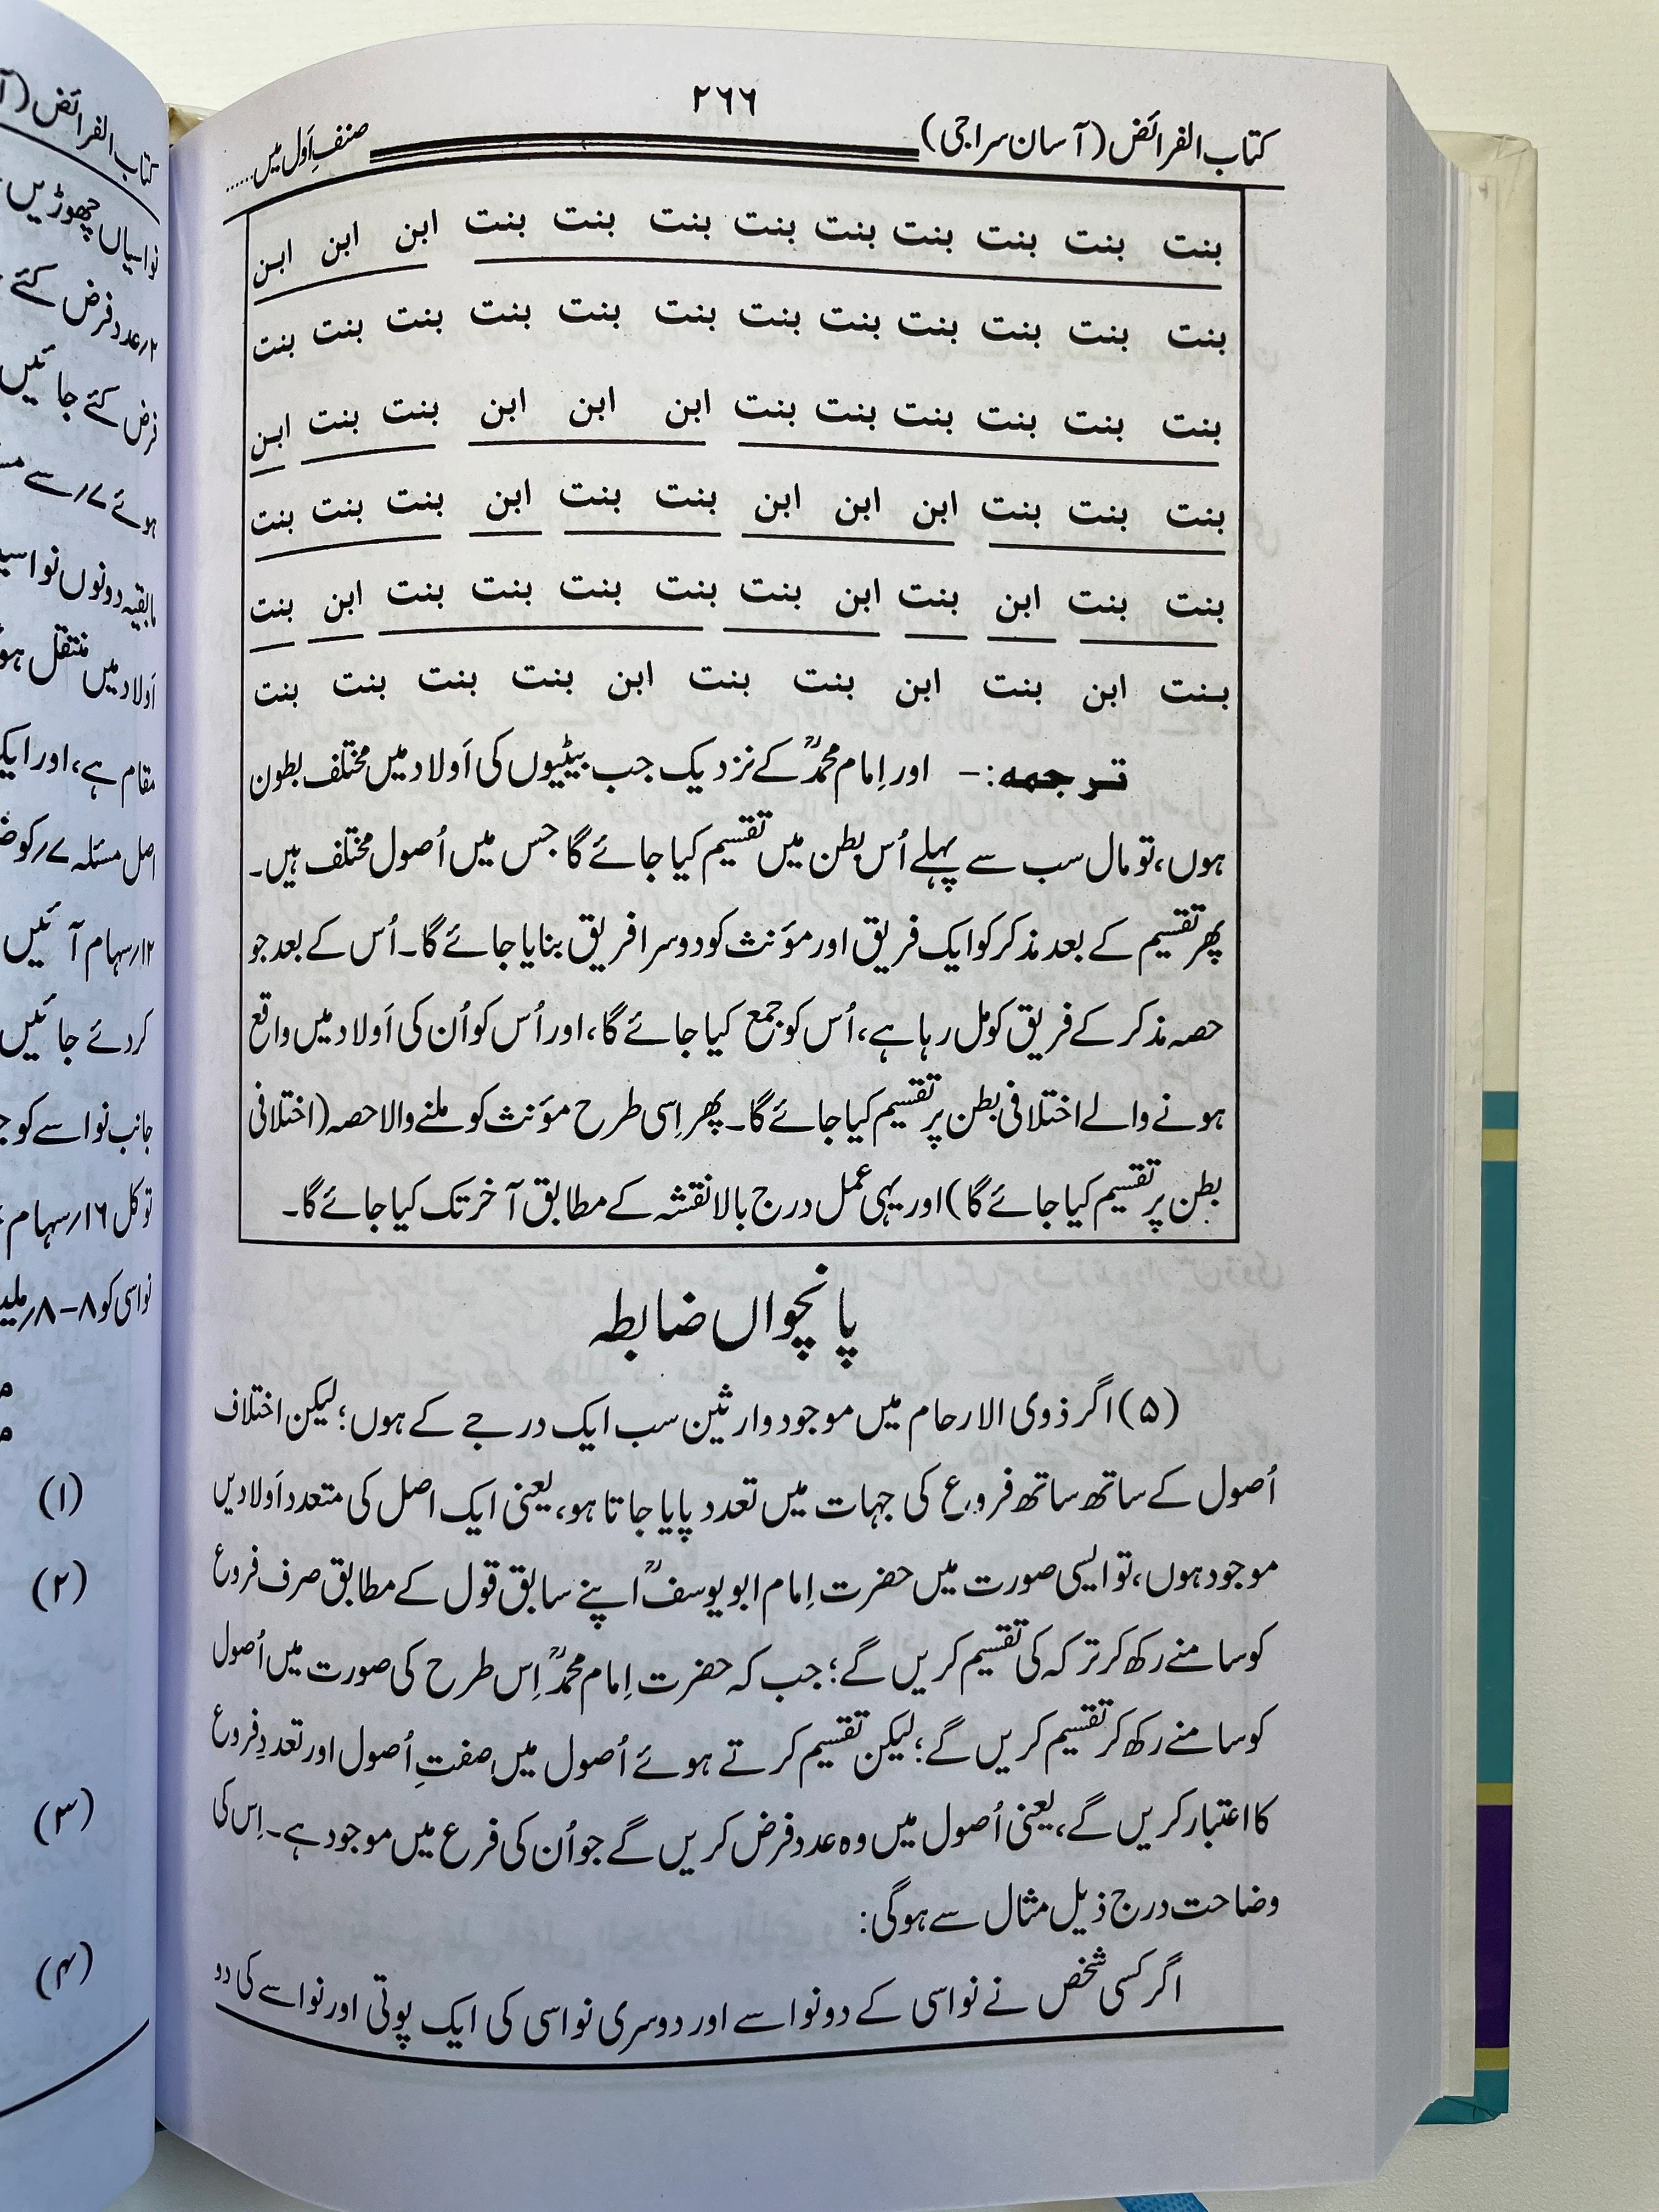 ۲۶۶
کتاب الفرائض (آسان سراجی)
صنفِ اَول میں......
بنت بنت بنت بنت بنت بنت بنت بنت بنت ابن ابن ابن
بنت بنت بنت بنت بنت بنت بنت بنت بنت بنت بنت بنت
بنت بنت بنت بنت بنت بنت ابن ابن ابن بنت بنت ابن
بنت بنت بنت ابن ابن ابن بنت بنت ابن بنت بنت بنت
بنت بنت ابن بنت ابن بنت بنت بنت بنت بنت ابن بنت
بنت ابن بنت ابن بنت بنت ابن بنت بنت بنت بنت
ترجمہ:- اور اِمام محمدؒ کے نزدیک جب بیٹیوں کی اَولاد میں مختلف بطون
ہوں، تو مال سب سے پہلے اُس بطن میں تقسیم کیا جائے گا جس میں اُصول مختلف ہیں۔
پھر تقسیم کے بعد مذکر کو ایک فریق اور مؤنث کو دوسرا فریق بنایا جائے گا۔ اُس کے بعد جو
حصہ مذکر کے فریق کو مل رہا ہے، اُس کو جمع کیا جائے گا، اور اُس کو اُن کی اَولاد میں واقع
ہونے والے اختلافی بطن پر تقسیم کیا جائے گا۔ پھر اِسی طرح مؤنث کو ملنے والا حصہ (اختلافی
بطن پر تقسیم کیا جائے گا) اور یہی عمل درج بالا نقشہ کے مطابق آخر تک کیا جائے گا۔
پانچواں ضابطہ
(۵) اگر ذوی الارحام میں موجود وارثین سب ایک درجے کے ہوں؛ لیکن اختلاف
اُصول کے ساتھ ساتھ فروع کی جہات میں تعدد پایا جاتا ہو، یعنی ایک اصل کی متعدد اَولادیں
موجود ہوں، تو ایسی صورت میں حضرت اِمام ابو یوسفؒ اپنے سابق قول کے مطابق صرف فروع
کو سامنے رکھ کر ترکہ کی تقسیم کریں گے؛ جب کہ حضرت اِمام محمدؒ اِس طرح کی صورت میں اُصول
کو سامنے رکھ کر تقسیم کریں گے؛ لیکن تقسیم کرتے ہوئے اُصول میں صفتِ اُصول اور تعددِ فروع
کا اعتبار کریں گے، یعنی اُصول میں وہ عدد فرض کریں گے جو اُن کی فرع میں موجود ہے۔ اِس کی
وضاحت درج ذیل مثال سے ہوگی:
اگر کسی شخص نے نواسی کے دو نواسے اور دوسری نواسی کی ایک پوتی اور نواسے کی دو
کتاب الفرائض (آ
نواسیاں چھوڑیں
۲؍عدد فرض کئے
فرض کئے جائیں
ہوئے ۷؍سے
مابقیہ دونوں
اَولاد میں منتقل
مقام ہے، اور ایک
اصل مسئلہ ۷؍کو
۱۲؍سہام آئیں
کر دئے جائیں
جانب نواسے کو
تو کل ۱۶؍سہام
نواسی کو ۸-۸؍
(۱)
(۲)
(۳)
(۴)